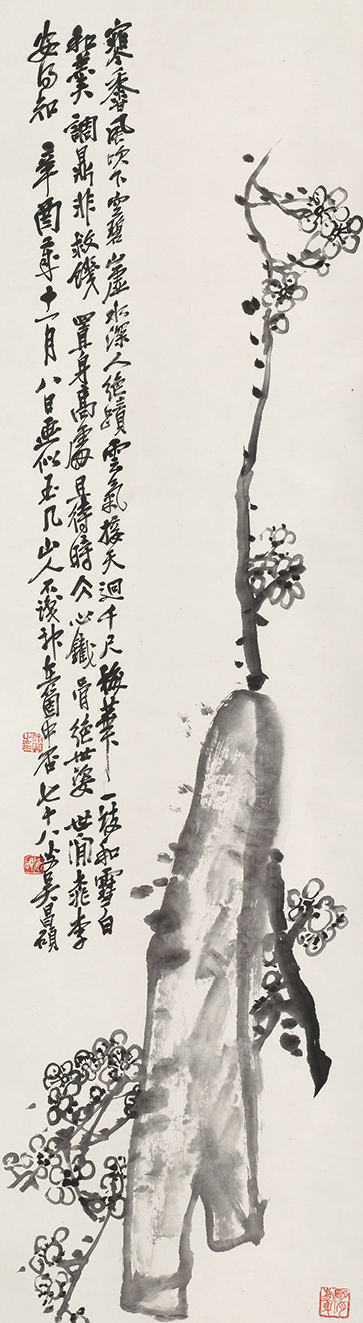 寒香風吹下空碧山虛水深人絕蹟雲氣接天迥千尺梅華一枝和雪白
和羹調鼎非救饑置身高處且待時冬心鐵骨絕世姿世間桃李
安得知 辛酉年十一月八日 畫似玉几山人不識神在箇中否七十八叟吳昌碩